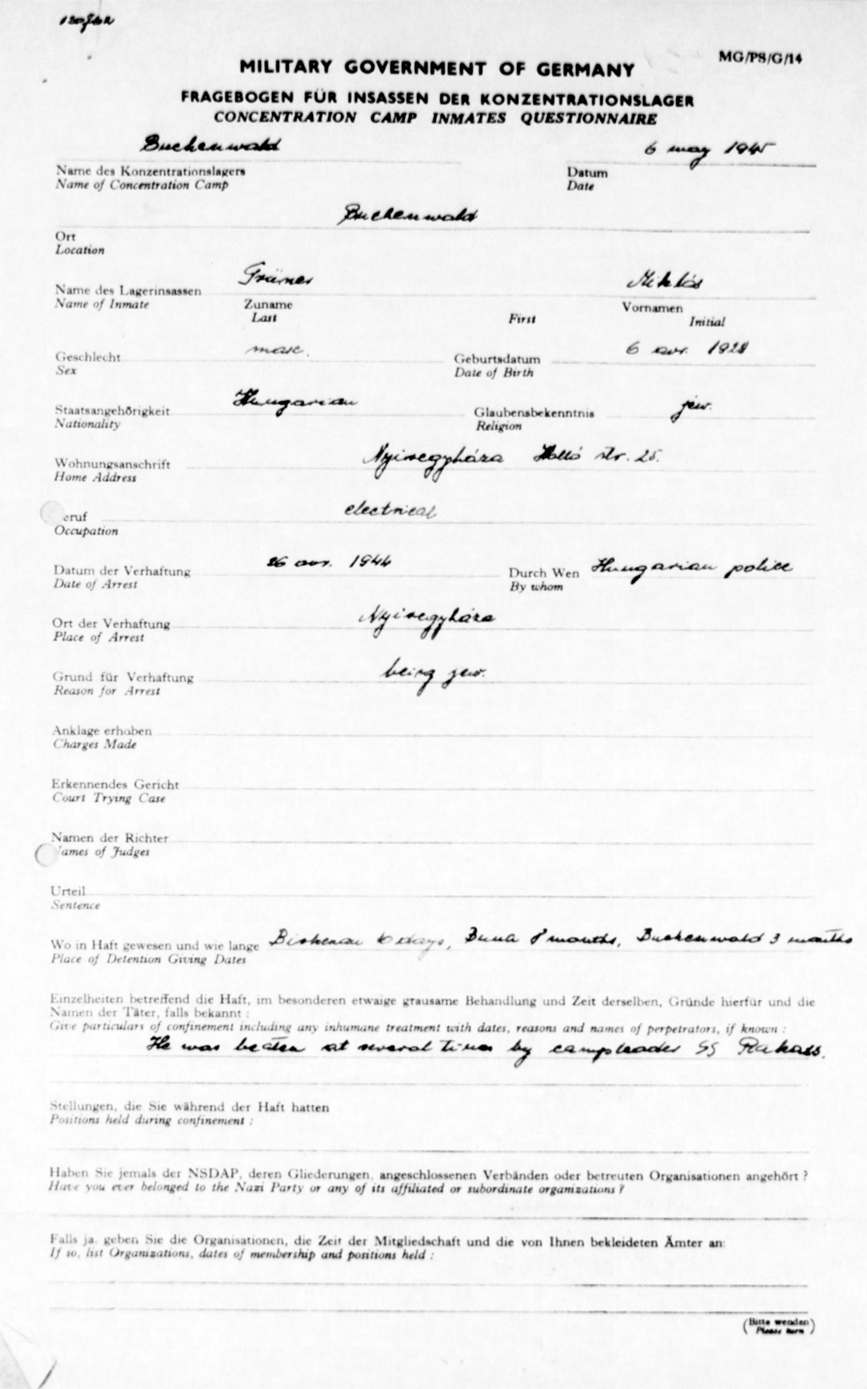 MG/PS/G/14
MILITARY GOVERNMENT OF GERMANY
FRAGEBOGEN FÜR INSASSEN DER KONZENTRATIONSLAGER
CONCENTRATION CAMP INMATES QUESTIONNAIRE
Buchenwald 6 may 1945
Name des Konzentrationslagers Datum
Name of Concentration Camp Date
Buchenwald
Ort
Location
Miklós
Name des Lagerinsassen Zuname Vornamen
Name of Inmate Last First Initial
Geschlecht masc. Geburtsdatum 6 apr. 1928
Sex Date of Birth
Staatsangehörigkeit Hungarian Glaubensbekenntnis jew.
Nationality Religion
Wohnungsanschrift Nyiregyháza Holló str. 25.
Home Address
eruf electrical
Occupation
Datum der Verhaftung 26 apr. 1944 Durch Wen Hungarian police
Date of Arrest By whom
Ort der Verhaftung Nyiregyháza
Place of Arrest
Grund für Verhaftung being jew.
Reason for Arrest
Anklage erhoben
Charges Made
Erkennendes Gericht
Court Trying Case
Namen der Richter
ames of Judges
Urteil
Sentence
Wo in Haft gewesen und wie lange Birkenau days, Buna 8 months, Buchenwald 3 months
Place of Detention Giving Dates
Einzelheiten betreffend die Haft, im besonderen etwaige grausame Behandlung und Zeit derselben, Gründe hierfür und die
Namen der Täter, falls bekannt :
Give particulars of confinement including any inhumane treatment with dates, reasons and names of perpetrators, if known :
He was beaten at several times by campleader SS Rakass.
Stellungen, die Sie während der Haft hatten
Positions held during confinement :
Haben Sie jemals der NSDAP, deren Gliederungen, angeschlossenen Verbänden oder betreuten Organisationen angehört ?
Have you ever belonged to the Nazi Party or any of its affiliated or subordinate organizations ?
Falls ja, geben Sie die Organisationen, die Zeit der Mitgliedschaft und die von Ihnen bekleideten Ämter an:
If so, list Organizations, dates of membership and positions held :
(Bitte wenden)
Please turn